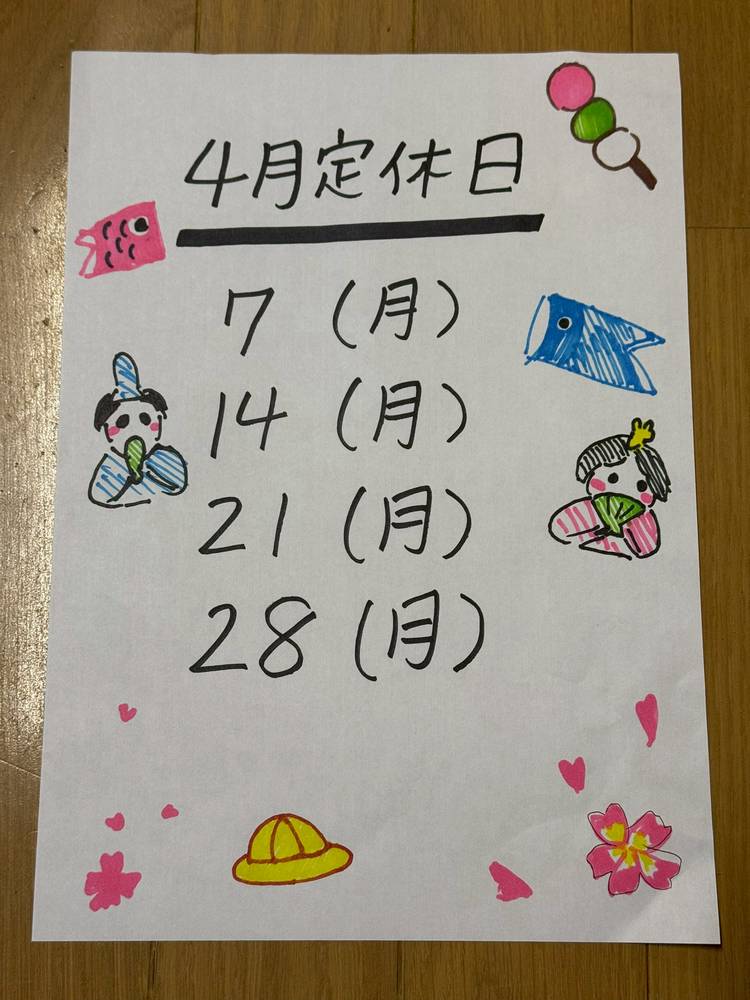 4月定休日
7（月）
14（月）
21（月）
28（月）